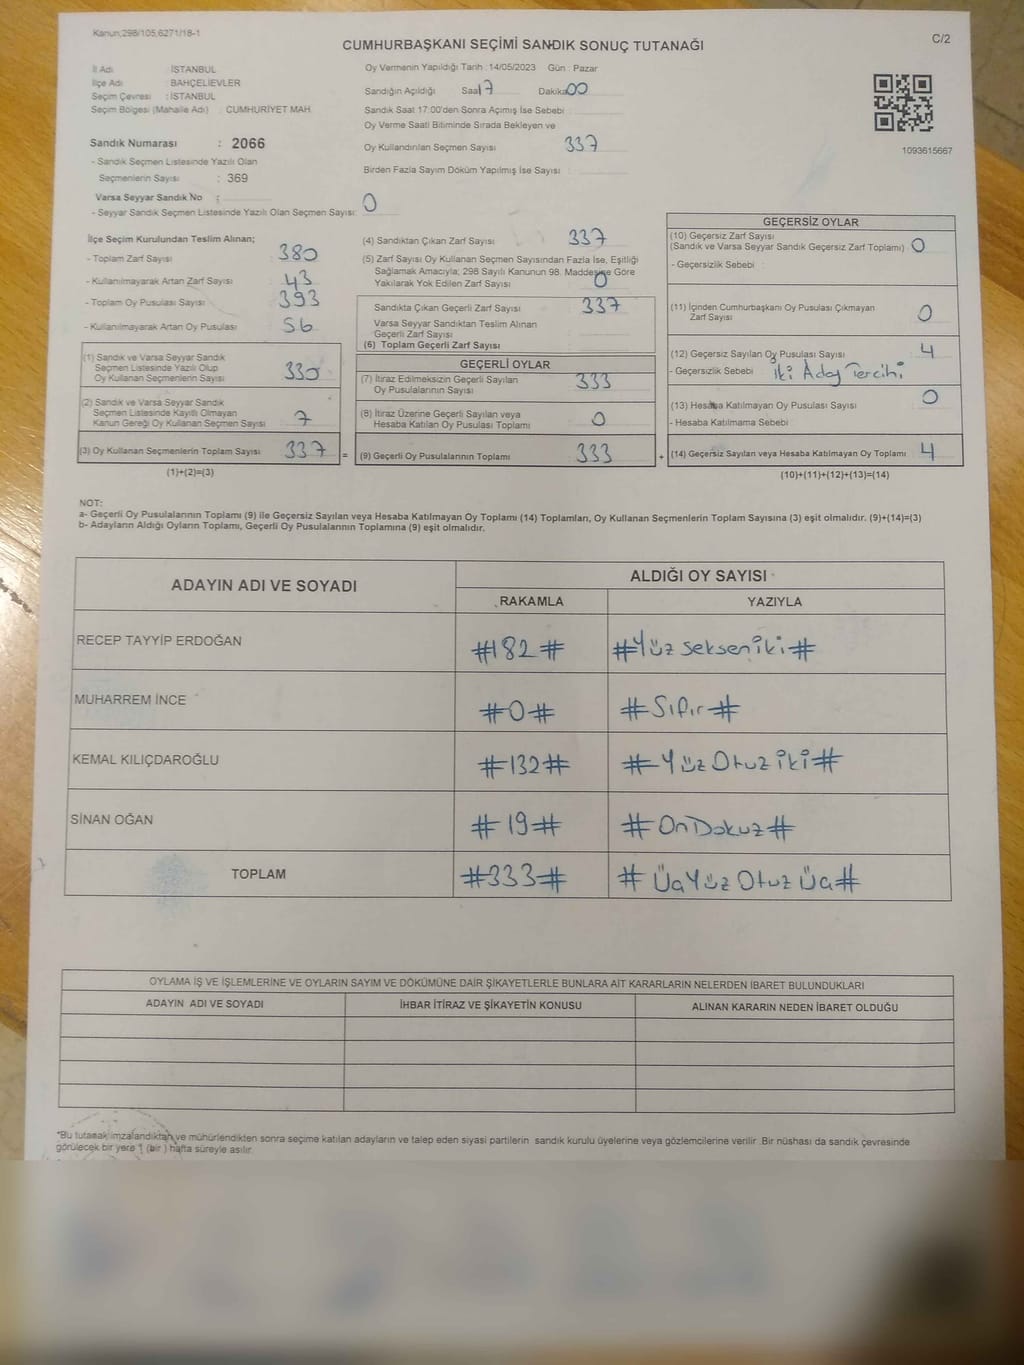 Kanun;298/105,6271/18-1
C/2
CUMHURBAŞKANI SEÇİMİ SANDIK SONUÇ TUTANAĞI
İl Adı : İSTANBUL
İlçe Adı : BAHÇELİEVLER
Seçim Çevresi : İSTANBUL
Seçim Bölgesi (Mahalle Adı) : CUMHURİYET MAH.
Oy Vermenin Yapıldığı Tarih : 14/05/2023 Gün : Pazar
Sandığın Açıldığı Saat 17 Dakika 00
Sandık Saat 17:00'den Sonra Açımış İse Sebebi :
Oy Verme Saati Bitiminde Sırada Bekleyen ve
Oy Kullandırılan Seçmen Sayısı 337
Birden Fazla Sayım Döküm Yapılmış İse Sayısı :
1093615667
Sandık Numarası : 2066
- Sandık Seçmen Listesinde Yazılı Olan
Seçmenlerin Sayısı : 369
Varsa Seyyar Sandık No :
- Seyyar Sandık Seçmen Listesinde Yazılı Olan Seçmen Sayısı: 0
İlçe Seçim Kurulundan Teslim Alınan;
- Toplam Zarf Sayısı 380
- Kullanılmayarak Artan Zarf Sayısı 43
- Toplam Oy Pusulası Sayısı 393
- Kullanılmayarak Artan Oy Pusulası 56
(1) Sandık ve Varsa Seyyar Sandık
Seçmen Listesinde Yazılı Olup
Oy Kullanan Seçmenlerin Sayısı 330
(2) Sandık ve Varsa Seyyar Sandık
Seçmen Listesinde Kayıtlı Olmayan
Kanun Gereği Oy Kullanan Seçmen Sayısı 7
(3) Oy Kullanan Seçmenlerin Toplam Sayısı 337 =
(1)+(2)=(3)
(4) Sandıktan Çıkan Zarf Sayısı 337
(5) Zarf Sayısı Oy Kullanan Seçmen Sayısından Fazla İse, Eşitliği
Sağlamak Amacıyla; 298 Sayılı Kanunun 98. Maddesine Göre
Yakılarak Yok Edilen Zarf Sayısı 0
Sandıkta Çıkan Geçerli Zarf Sayısı 337
Varsa Seyyar Sandıktan Teslim Alınan
Geçerli Zarf Sayısı
(6) Toplam Geçerli Zarf Sayısı
GEÇERLİ OYLAR
(7) İtiraz Edilmeksizin Geçerli Sayılan
Oy Pusulalarının Sayısı 333
(8) İtiraz Üzerine Geçerli Sayılan veya
Hesaba Katılan Oy Pusulası Toplamı 0
(9) Geçerli Oy Pusulalarının Toplamı 333 +
GEÇERSİZ OYLAR
(10) Geçersiz Zarf Sayısı
(Sandık ve Varsa Seyyar Sandık Geçersiz Zarf Toplamı) 0
- Geçersizlik Sebebi :
(11) İçinden Cumhurbaşkanı Oy Pusulası Çıkmayan
Zarf Sayısı 0
(12) Geçersiz Sayılan Oy Pusulası Sayısı 4
- Geçersizlik Sebebi İki Aday Tercihi
(13) Hesaba Katılmayan Oy Pusulası Sayısı 0
- Hesaba Katılmama Sebebi
(14) Geçersiz Sayılan veya Hesaba Katılmayan Oy Toplamı 4
(10)+(11)+(12)+(13)=(14)
NOT:
a- Geçerli Oy Pusulalarının Toplamı (9) ile Geçersiz Sayılan veya Hesaba Katılmayan Oy Toplamı (14) Toplamları, Oy Kullanan Seçmenlerin Toplam Sayısına (3) eşit olmalıdır. (9)+(14)=(3)
b- Adayların Aldığı Oyların Toplamı, Geçerli Oy Pusulalarının Toplamına (9) eşit olmalıdır.
ADAYIN ADI VE SOYADI ALDIĞI OY SAYISI
RAKAMLA YAZIYLA
RECEP TAYYİP ERDOĞAN #182# #Yüz seksen iki#
MUHARREM İNCE #0# #Sıfır#
KEMAL KILIÇDAROĞLU #132# #Yüz Otuz iki#
SİNAN OĞAN #19# #On Dokuz#
TOPLAM #333# #Üç Yüz Otuz Üç#
OYLAMA İŞ VE İŞLEMLERİNE VE OYLARIN SAYIM VE DÖKÜMÜNE DAİR ŞİKAYETLERLE BUNLARA AİT KARARLARIN NELERDEN İBARET BULUNDUKLARI
ADAYIN ADI VE SOYADI İHBAR İTİRAZ VE ŞİKAYETİN KONUSU ALINAN KARARIN NEDEN İBARET OLDUĞU
*Bu tutanak imzalandıktan ve mühürlendikten sonra seçime katılan adayların ve talep eden siyasi partilerin sandık kurulu üyelerine veya gözlemcilerine verilir. Bir nüshası da sandık çevresinde
görülecek bir yere 1 (bir) hafta süreyle asılır.